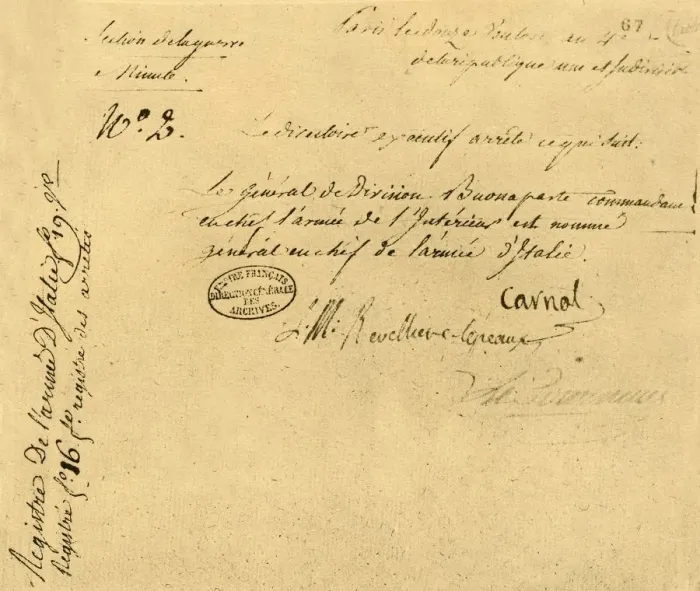 67
Section de la guerre
Paris le douze Ventose, en 4e
Minute.
de la république une et Indivisible
No. 2.
Le directoire executif arrête ce qui suit:
Le général de Division Buonaparte commandant
en chef l'armée de l'Intérieur est nommé
général en chef de l'armée d'Italie.
CENTRE FRANÇAIS
DIRECTION GÉNÉRALE
DES
ARCHIVES.
Carnot
L. M. Revelliere-lepeaux
Registre De l'armée D'Italie fo 19.
Registré fo 16 registre des arrêtés